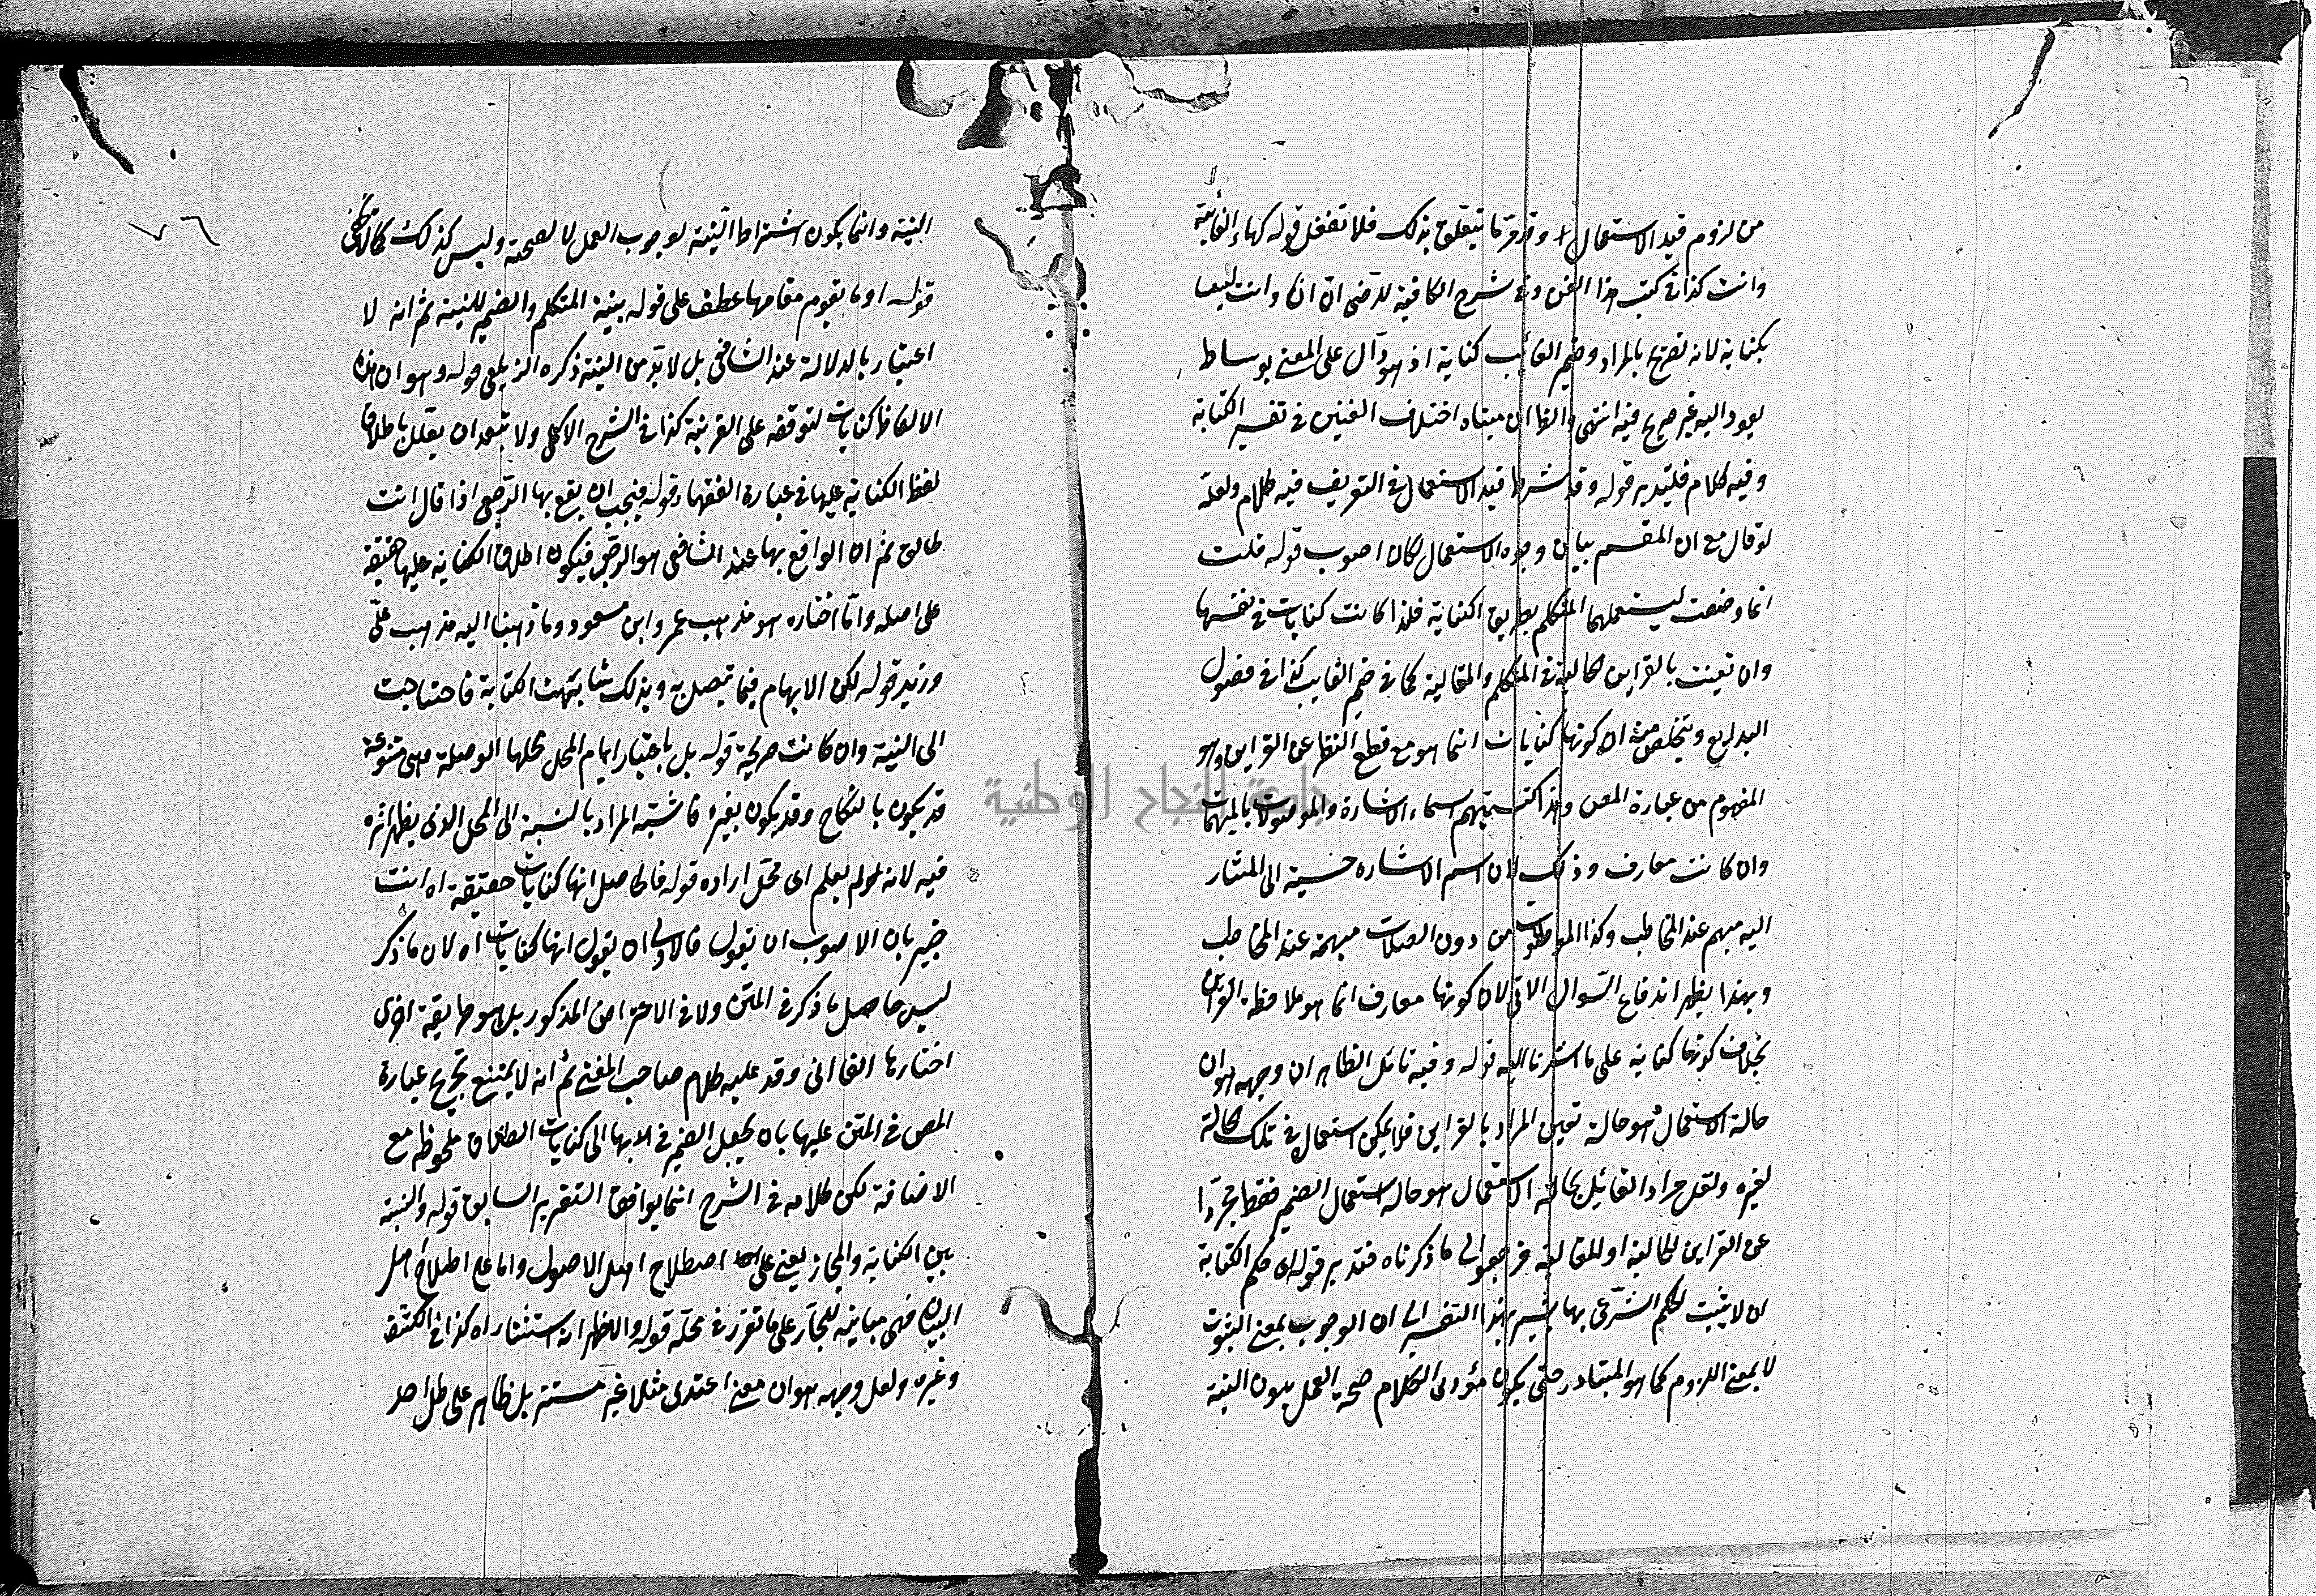 من لزوم قيد الاستعمال وقد مر ما يتعلق بذلك فلا تغفل قوله كهاء الغائبة
وانت كذا في كتب هذا الفن وفي شرح الكافية للرضى ان انا وانت ليسا
بكناية لانه تصريح بالمراد وضمير الغائب كناية اذ هو دال على المعنى بوساطة
يعود اليه غير صريح فيه انتهى والظاهر ان مبناه اختلاف الفنين في تفسير الكناية
وفيه كلام فليتدبر قوله وقد شرط قيد الاستعمال في التعريف فيه كلام ولعله
لو قال مع ان المقسم بيان وجوه الاستعمال لكان اصوب قوله قلت
انما وضعت ليستعملها المتكلم بطريق الكناية فلذا كانت كنايات في نفسها
وان تعينت بالقراين الحالية في المتكلم والمقالية كما في ضمير الغايب كذا في فصول
البدايع ويتخلص منه ان كونها كنايات انما هو مع قطع النظر عن القراين وهو
المفهوم من عبارة المص وهذا كتسميتهم اسماء الاشارة والموصولات بالمبهمات
وان كانت معارف وذلك لان اسم الاشاره حسية الى المشار
اليه مبهم عند المخاطب وكذا الموصولات من دون الصلات مبهمة عند المخاطب
وبهذا يظهر اندفاع السؤال الاتي لان كونها معارف انما هو بملاحظة القراين
بخلاف كونها كناية على ما اشرنا اليه قوله وفيه تامل الظاهر ان وجهه هو ان
حالة الاستعمال هو حالة تعين المراد بالقراين فلا يمكن استعمال في تلك الحالة
لغيره ولعل مراد القائل بحالة الاستعمال هو حالة استعمال الضمير فقط مجردا
عن القراين الحالية او المقالية فرجع الى ما ذكرناه فتدبر قوله اى حكم الكناية
ان لا يثبت الحكم الشرعى بها يشير بهذا التفسير الى ان الوجوب بمعنى الثبوت
لا بمعنى اللزوم كما هو المتبادر حتى يكون مؤدى الكلام صحة العمل بدون النية
النية وانما يكون اشتراط النية لوجوب العمل لا لصحته وليس كذلك كما لا يخفى
قوله او ما يقوم مقامها عطف على قوله بنية المتكلم والضمير للنية ثم انه لا
اعتبار بالدلالة عند الشافعى بل لا بد من النية ذكره الزيلعى قوله وهو ان هذه
الالفاظ كنايات لتوقفه على القرينة كذا في الشرح الاكملى ولا يبعد ان يعلل باطلاق
لفظ الكناية عليها في عبارة الفقهاء قوله فيجب ان يقع بها الرجعى اذا قال انت
طالق ثم ان الواقع بها عند الشافعى هو الرجعى فيكون اطلاق الكناية عليها حقيقة
على اصله وما اختاره هو مذهب عمر وابن مسعود وما ذهبنا اليه مذهب على
وزيد قوله لكن الابهام فيما تتصل به وبذلك شابهت الكناية فاحتاجت
الى النية وان كانت صريحة قوله بل باعتبار ابهام المحل محلها الوصلة وهى متنوعة
قد يكون بالنكاح وقد يكون بغيره فاشتبه المراد بالنسبة الى المحل الذى يظهر اثره
فيه لانه لم يعلم اى محل اراده قوله فالحاصل انها كنايات حقيقة اه انت
خبير بان الاصوب ان يقول فالاولى ان يقول انها كنايات اه لان ما ذكر
ليس حاصل ما ذكر في المتن ولا في الاعتراض المذكور بل هو طريقة اخرى
اختارها القاانى وقد عليه كلام صاحب المغنى ثم انه لا يمتنع تخريج عبارة
المص في المتن عليها بان يجعل الضمير في لابهامها الى كنايات الطلاق ملحوظة مع
الاضافة لكن كلامه في الشرح انما يوافق التقرير السابق قوله والنسبة
بين الكناية والمجاز يعنى على اصطلاح اهل الاصول واما على اصطلاح اهل
البيان فهى مباينة للمجاز على ما تقرر في محله قوله والاظهر ان استتار اه كذا في الكشف
وغيره ولعل وجهه هو ان معنى اعتدى مثلا غير مستتر بل ظاهر على كل احد
جامعة النجاح الوطنية